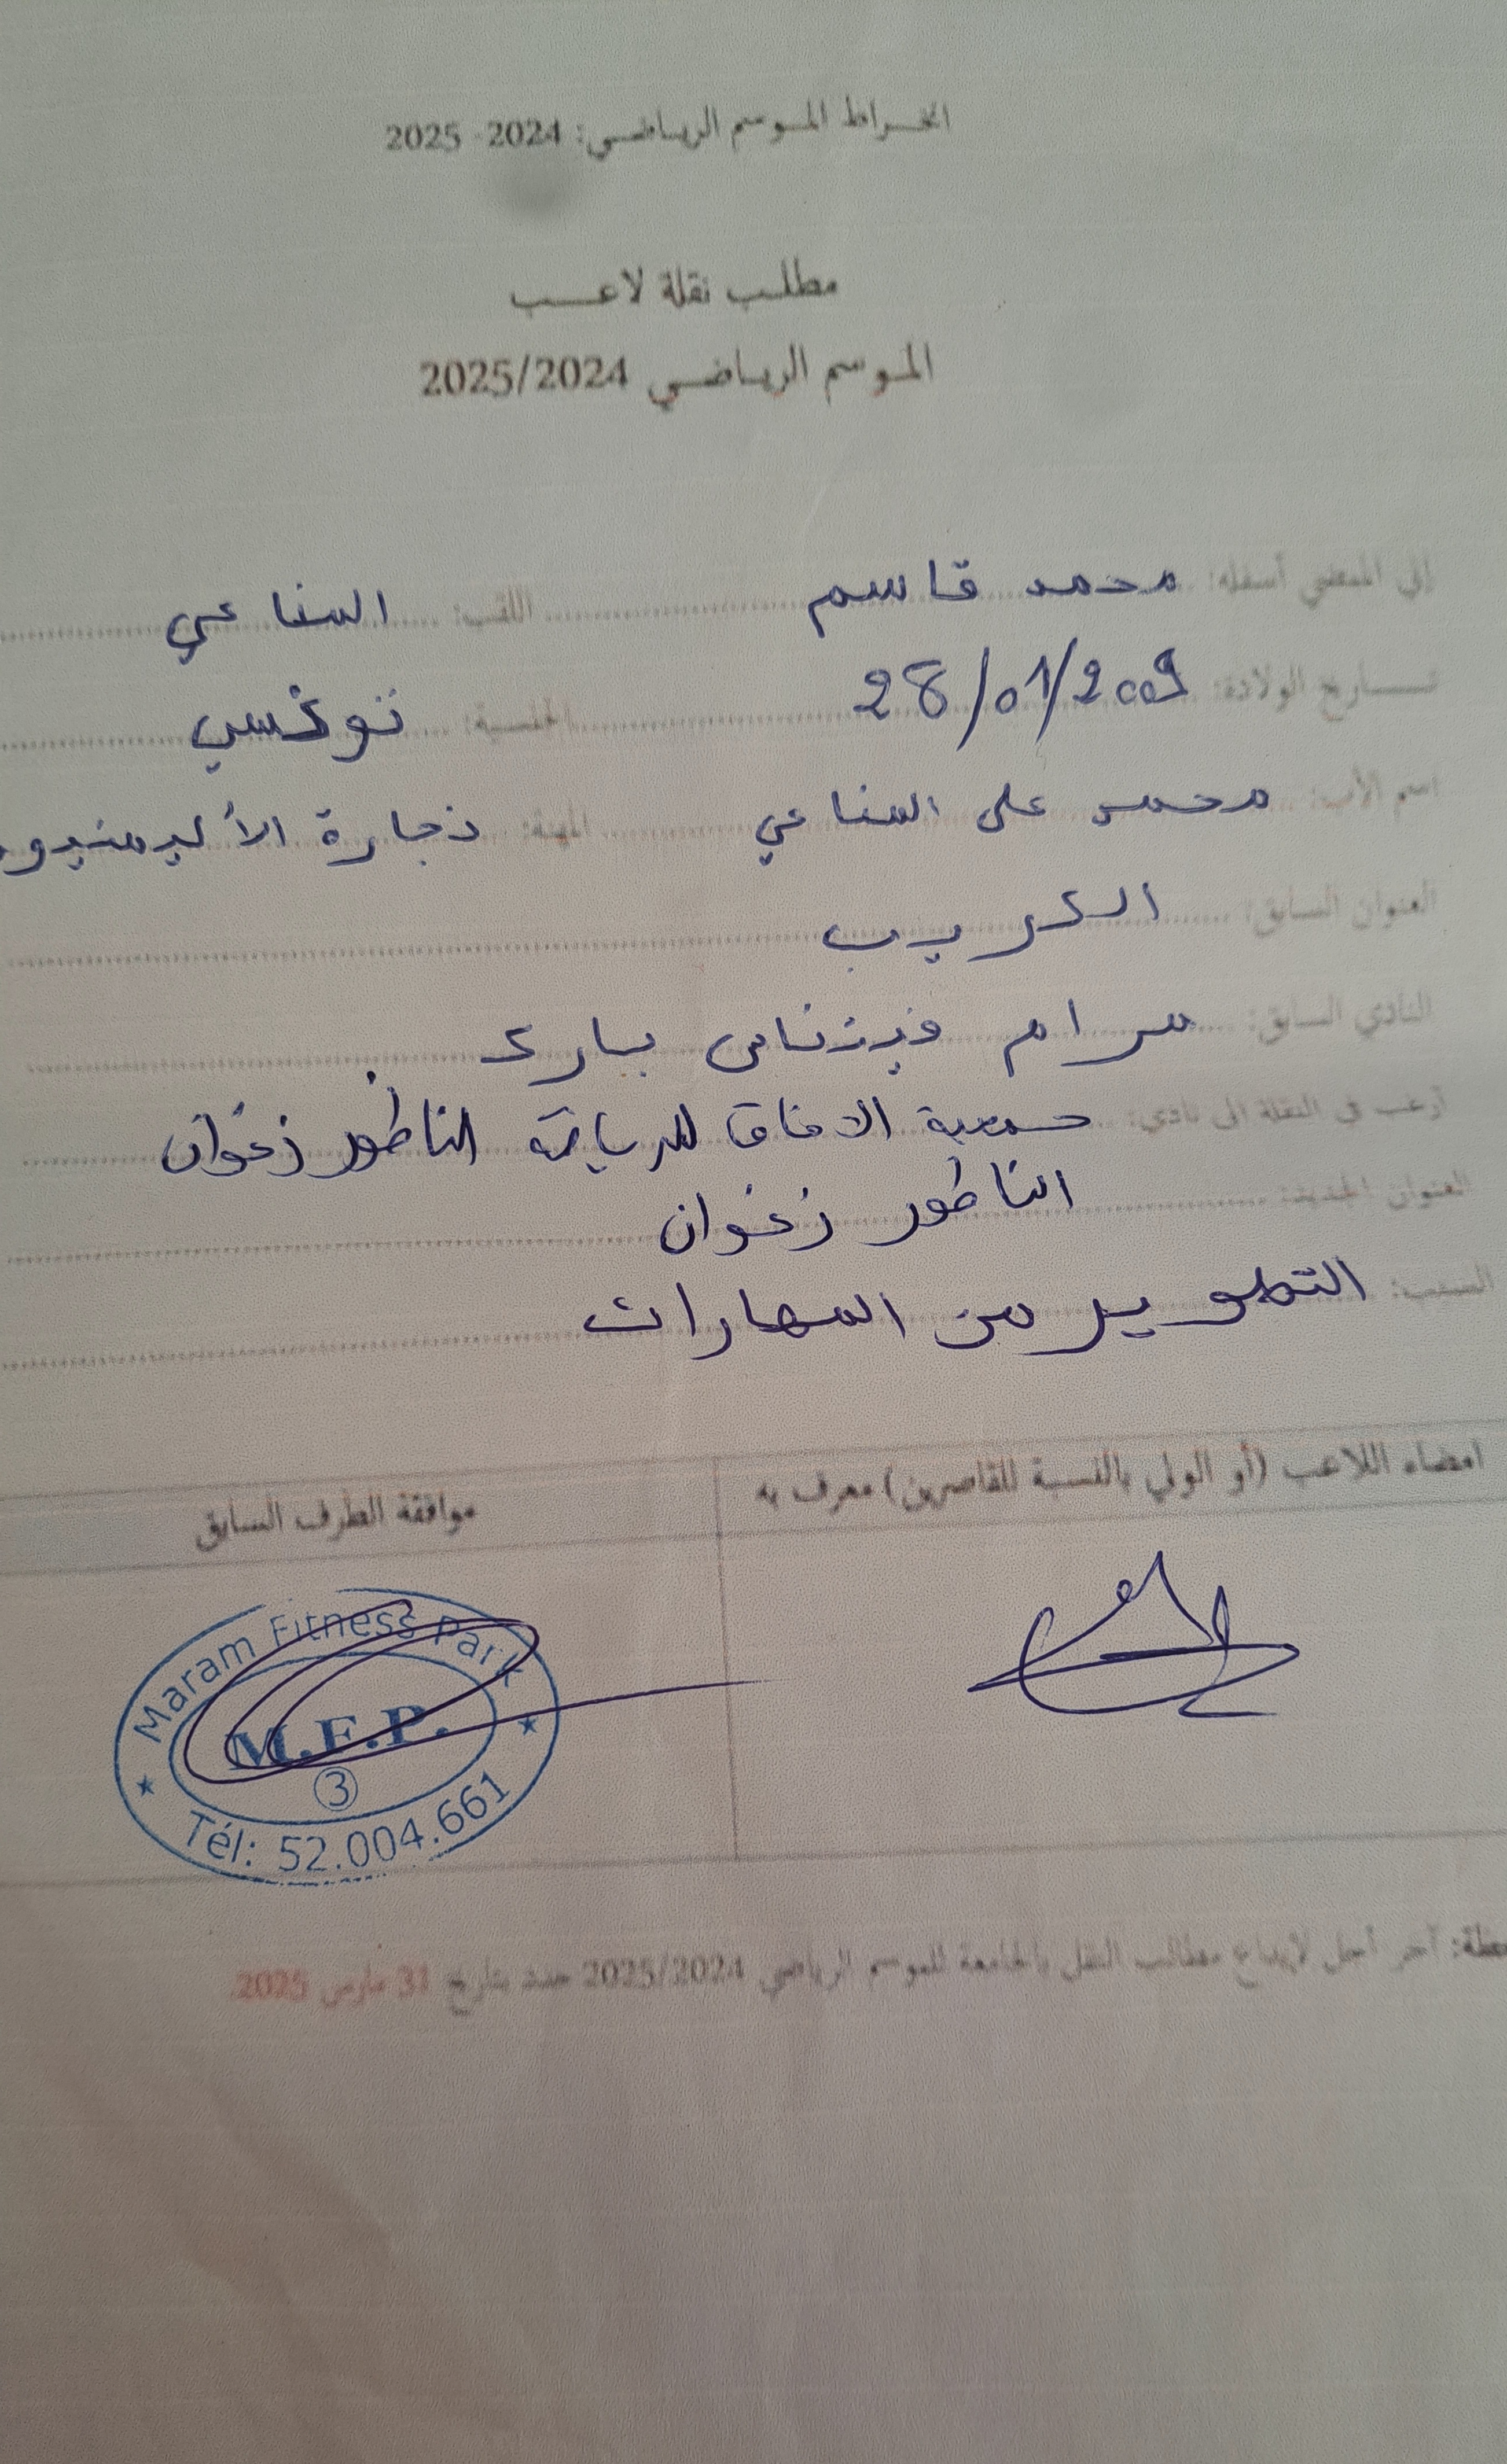 انخراط الموسم الرياضي: 2024- 2025
مطلب نقلة لاعب
الموسم الرياضي 2025/2024
إني الممضي أسفله: محمد قاسم اللقب: السناعي
تاريخ الولادة: 28/01/2009 الجنسية: تونسي
اسم الأب: محمد علي السناعي المهنة: نجارة الأليمنيوم
العنوان السابق: الكريب
النادي السابق: مرام فيتناس بارك
أرغب في النقلة الى نادي: جمعية الافاق للرياضة الناظور زغوان
العنوان الجديد: الناظور زغوان
السبب: التطوير من المهارات
امضاء اللاعب (أو الولي بالنسبة للقاصرين) معرف به
موافقة الطرف السابق
Maram Fitness Park
M.F.P.
3
Tél: 52.004.661
آخر أجل لإيداع مطالب النقل بالجامعة للموسم الرياضي 2025/2024 حدد بتاريخ 31 مارس 2025.